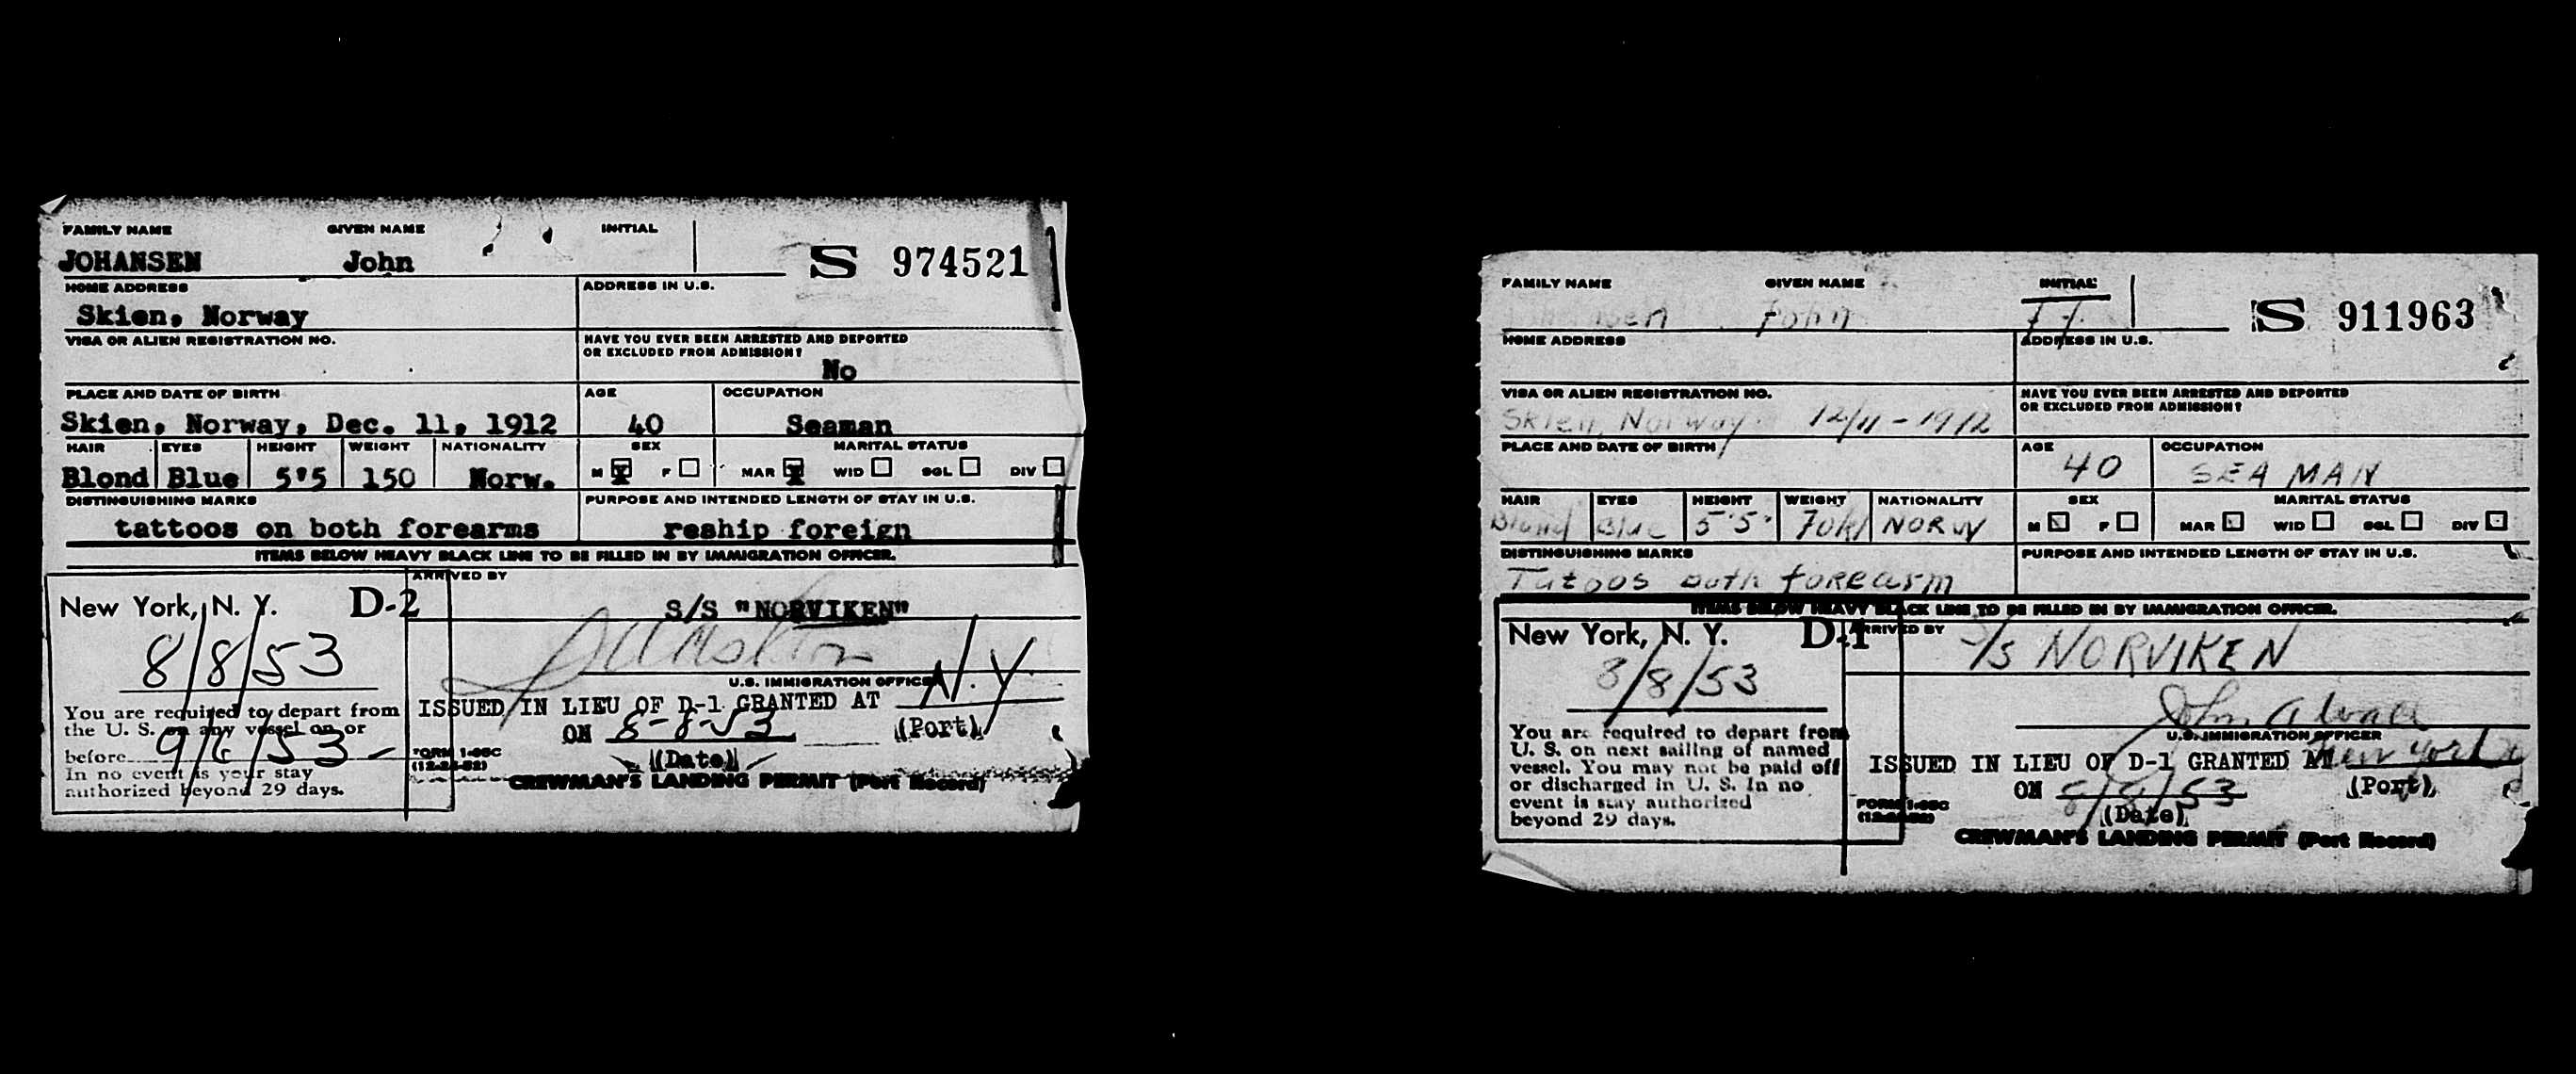 FAMILY NAME GIVEN NAME INITIAL
JOHANSEN John S 974521
HOME ADDRESS ADDRESS IN U.S.
Skien, Norway
VISA OR ALIEN REGISTRATION NO. HAVE YOU EVER BEEN ARRESTED AND DEPORTED
OR EXCLUDED FROM ADMISSION?
No
PLACE AND DATE OF BIRTH AGE OCCUPATION
Skien, Norway, Dec. 11, 1912 40 Seaman
HAIR EYES HEIGHT WEIGHT NATIONALITY SEX MARITAL STATUS
Blond Blue 5'5 150 Norw. M X F MAR X WID SGL DIV
DISTINGUISHING MARKS PURPOSE AND INTENDED LENGTH OF STAY IN U.S.
tattoos on both forearms reship foreign
ITEMS BELOW HEAVY BLACK LINE TO BE FILLED IN BY IMMIGRATION OFFICER.
ARRIVED BY
New York, N. Y. D-2 S/S "NORVIKEN"
8/8/53
U.S. IMMIGRATION OFFICER
You are required to depart from
the U. S. on any vessel on or
before 9/6/53
In no event is your stay
authorized beyond 29 days.
ISSUED IN LIEU OF D-1 GRANTED AT N.Y.
ON 8-8-53 (Port)
(Date)
FORM I-95C
(12-24-52)
CREWMAN'S LANDING PERMIT (Port Record)
FAMILY NAME GIVEN NAME INITIAL
John S 911963
HOME ADDRESS ADDRESS IN U.S.
VISA OR ALIEN REGISTRATION NO. HAVE YOU EVER BEEN ARRESTED AND DEPORTED
OR EXCLUDED FROM ADMISSION?
Skien, Norway 12/11-1912
PLACE AND DATE OF BIRTH AGE OCCUPATION
40 SEAMAN
HAIR EYES HEIGHT WEIGHT NATIONALITY SEX MARITAL STATUS
Blond Blue 5'5" 70k NORW M F MAR WID SGL DIV
DISTINGUISHING MARKS PURPOSE AND INTENDED LENGTH OF STAY IN U.S.
Tatoos both forearm
ITEMS BELOW HEAVY BLACK LINE TO BE FILLED IN BY IMMIGRATION OFFICER.
New York, N. Y. D-1 ARRIVED BY S/S NORVIKEN
8/8/53
U.S. IMMIGRATION OFFICER
You are required to depart from
U. S. on next sailing of named
vessel. You may not be paid off
or discharged in U. S. In no
event is stay authorized
beyond 29 days.
ISSUED IN LIEU OF D-1 GRANTED AT New York
ON 8/8/53 (Port)
(Date)
FORM I-95C
CREWMAN'S LANDING PERMIT (Port Record)